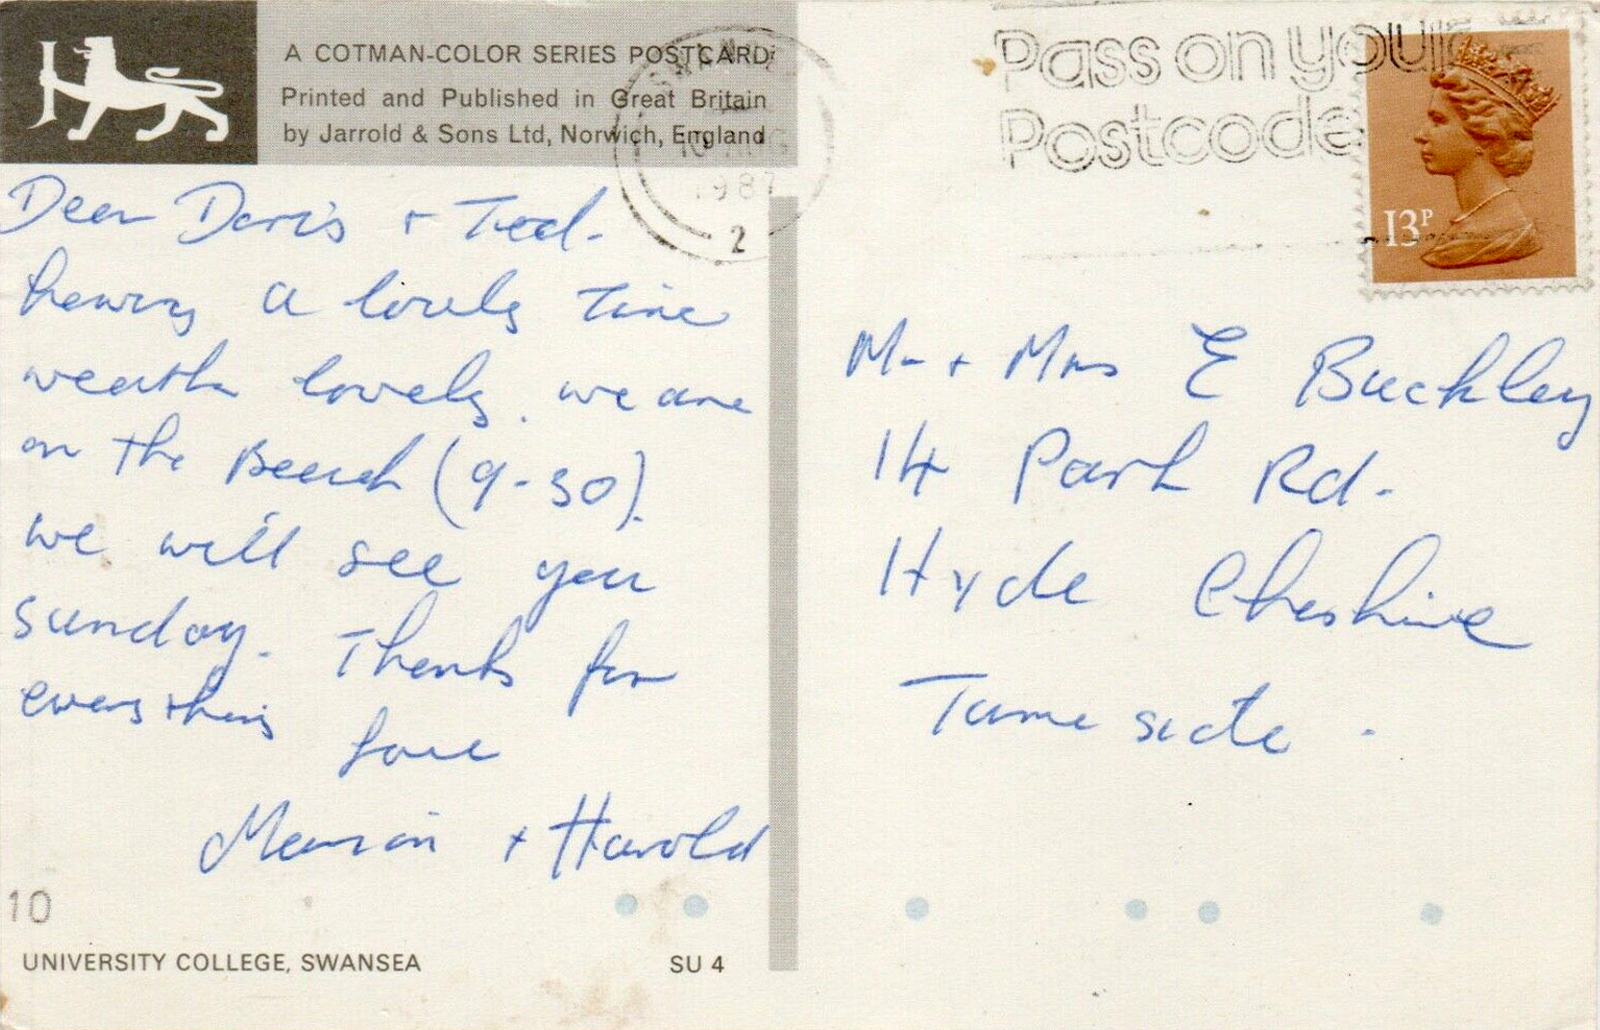 A COTMAN-COLOR SERIES POSTCARD
Printed and Published in Great Britain
by Jarrold & Sons Ltd, Norwich, England
Pass on your
Postcode
10 AUG
1987
2
13P
Dear Doris + Ted.
having a lovely time
weather lovely. we are
on the Beach (9-30).
we will see you
sunday. Thanks for
everything
love
Marion + Harold
Mr + Mrs E Buckley
14 Park Rd.
Hyde Cheshire
Tameside.
10
UNIVERSITY COLLEGE, SWANSEA
SU 4